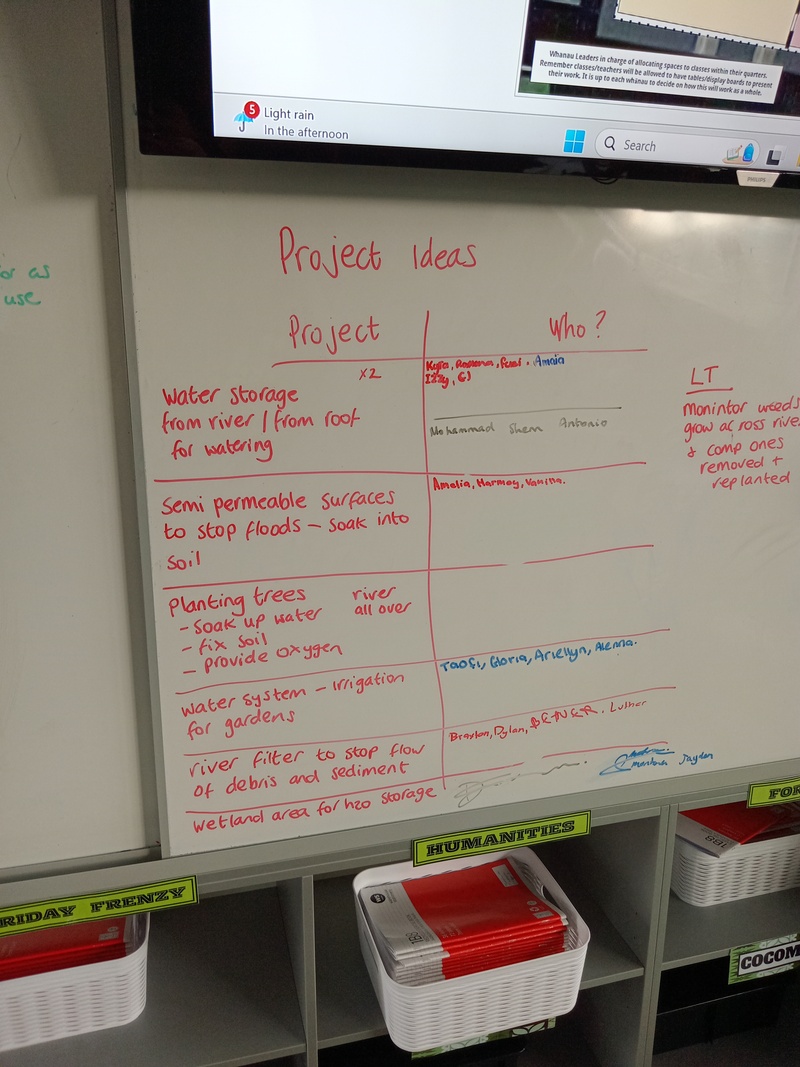 Whanau Leaders in charge of allocating spaces to classes within their quarters.
Remember classes/teachers will be allowed to have tables/display boards to present
their work. It is up to each whānau to decide on how this will work as a whole.
5
Light rain
In the afternoon
Search
PHILIPS
or as
use
Project Ideas
Project
Who?
x2
Water storage
from river / from roof
for watering
Kyra, Amaia
Izzy, CJ
Mohammad Shem Antonio
Semi permeable surfaces
to stop floods - soak into
soil
Amelia, Harmoy,
Planting trees river
- soak up water all over
- fix soil
- provide oxygen
water system - irrigation
for gardens
Taofi, Gloria, Ariellyn, Alenna.
river filter to stop flow
of debris and sediment
Braxton, Dylan, SPENCER. Luther
wetland area for h2o storage
Jayden
LT
monintor weeds
grow across rive
& comp ones
removed +
replanted
HUMANITIES
FOR
RIDAY FRENZY
COCOM
1B8
1B8